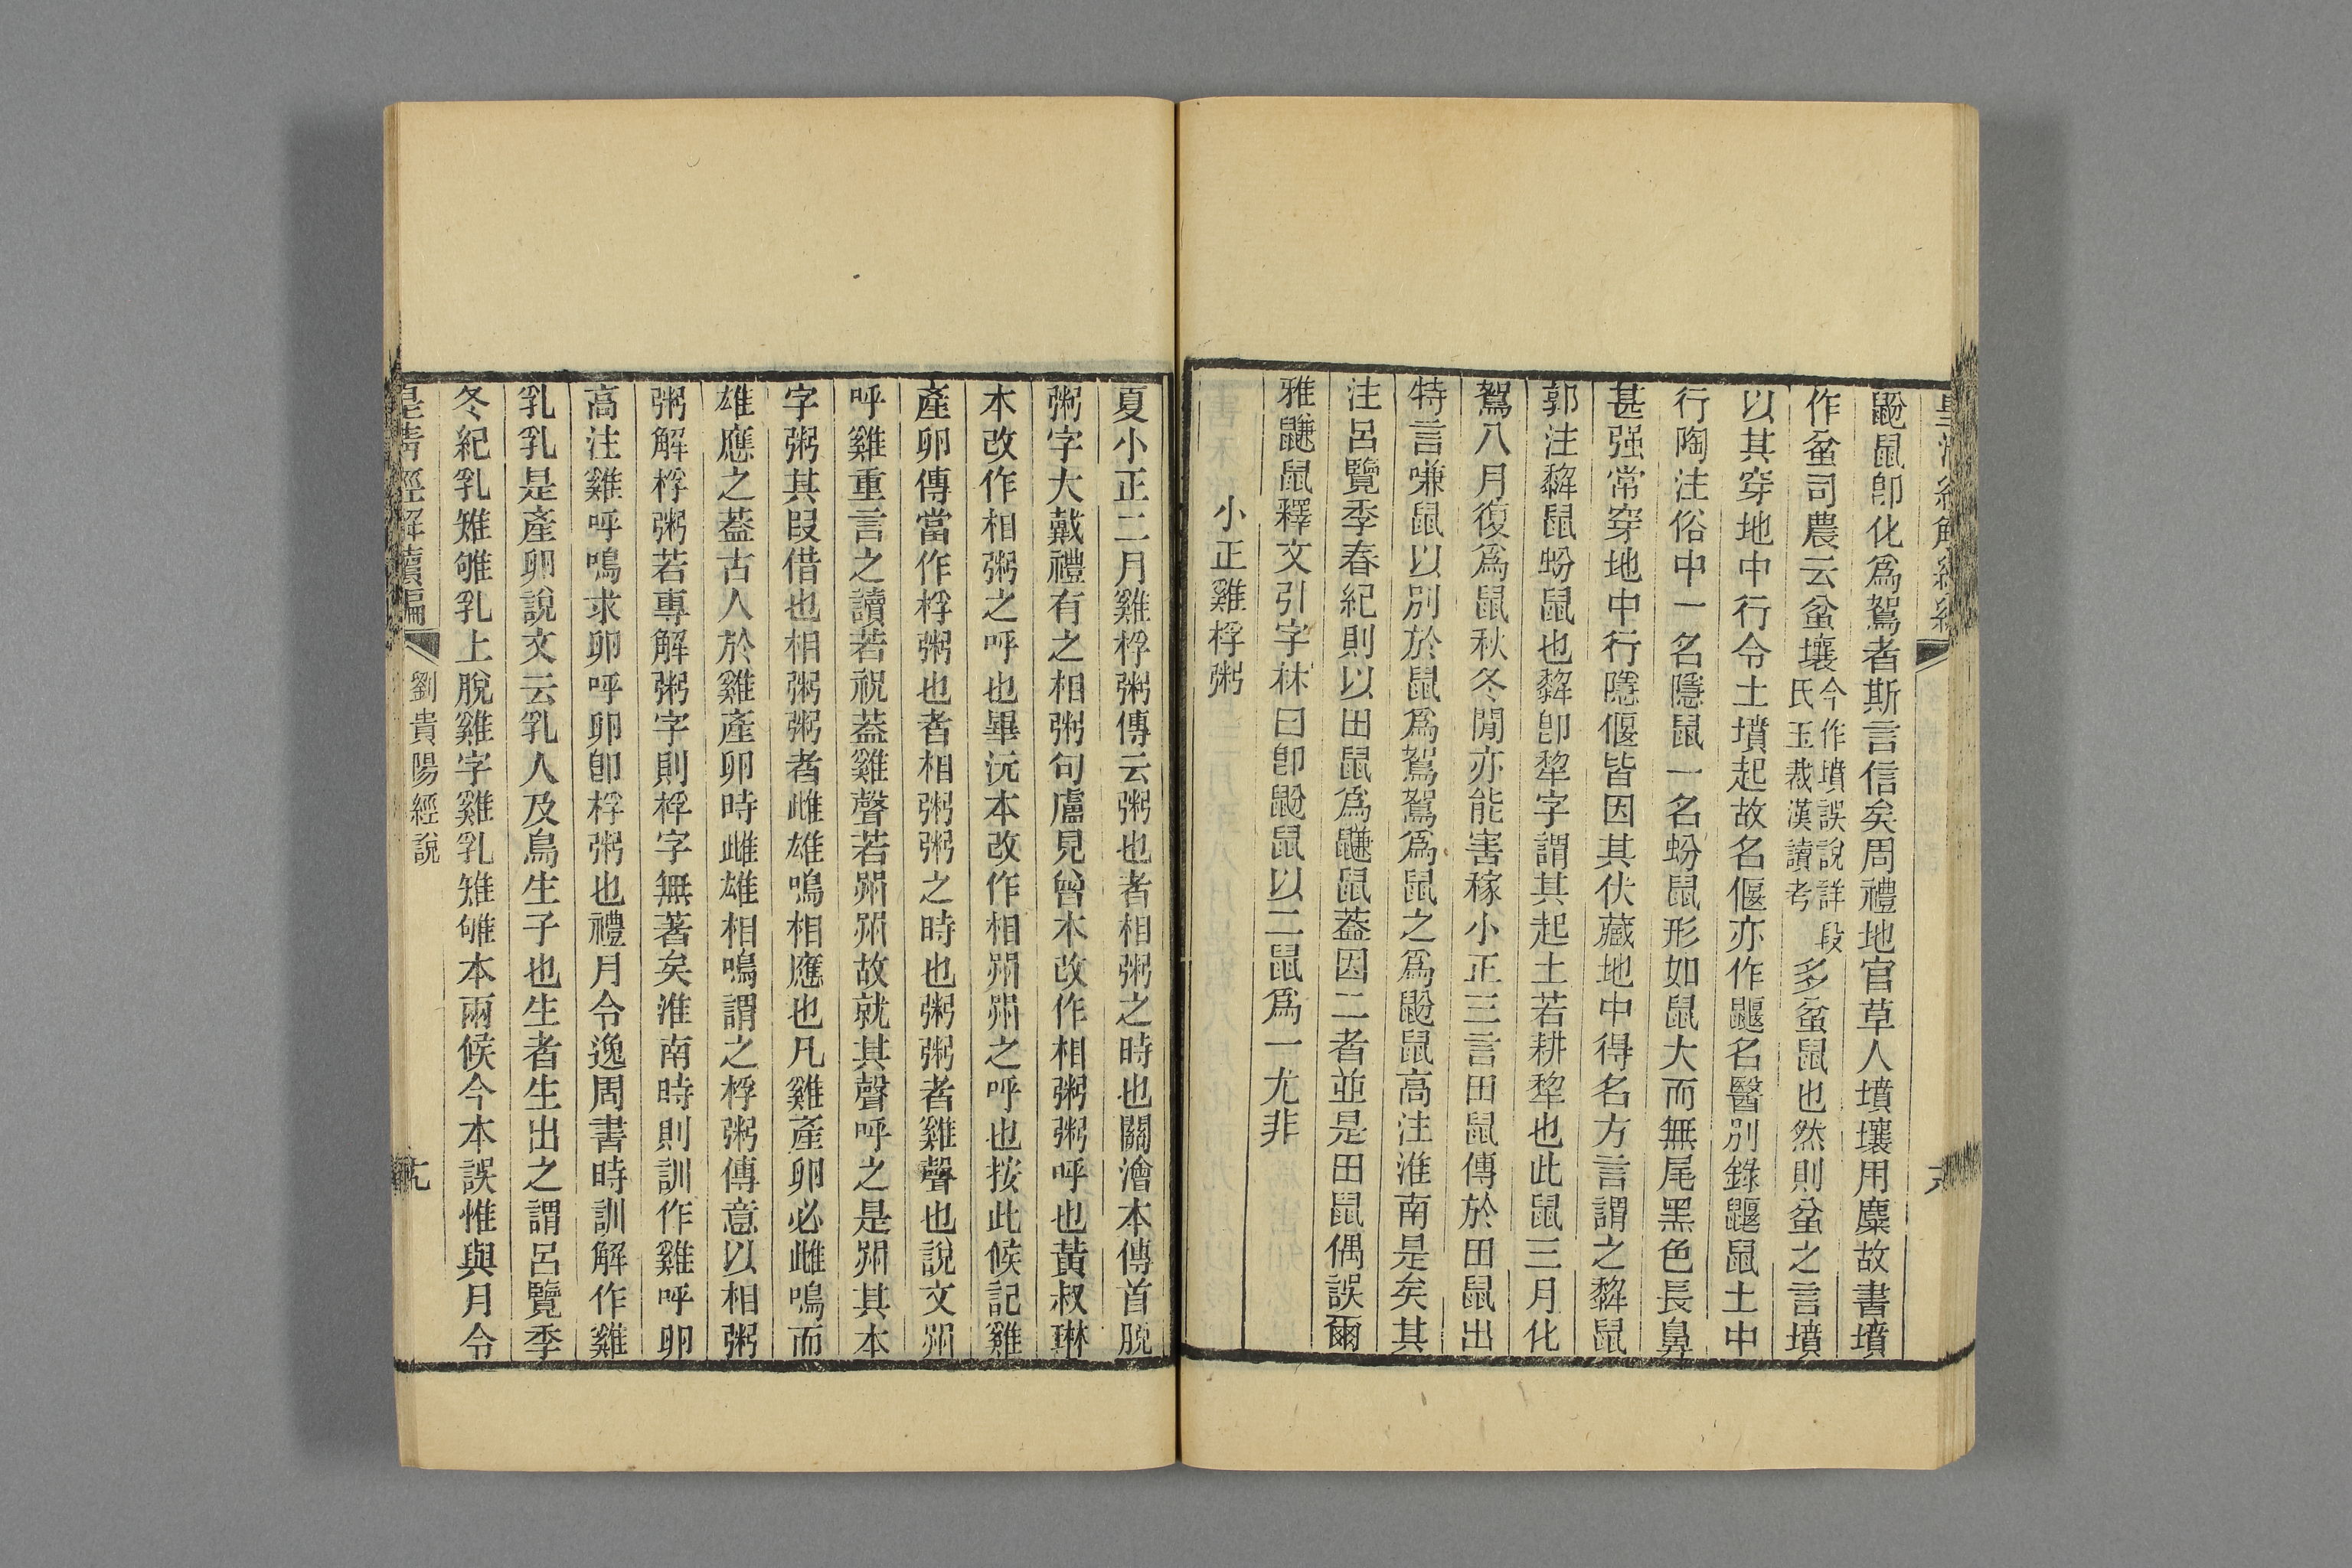 鼢鼠卽化爲鴽者斯言信矣周禮地官草人墳壤用麋故書墳
作蚠司農云蚠壤今作墳誤說詳段氏玉裁漢讀考多蚠鼠也然則蚠之言墳
以其穿地中行令土墳起故名偃亦作鼴名醫別錄鼴鼠土中
行陶注俗中一名隱鼠一名蚡鼠形如鼠大而無尾黑色長鼻
甚强常穿地中行隱偃皆因其伏藏地中得名方言謂之犂鼠
郭注犂鼠蚡鼠也犂卽犂字謂其起土若耕犂也此鼠三月化
鴽八月復爲鼠秋冬閒亦能害稼小正三言田鼠傳於田鼠出
特言嗛鼠以別於鼠爲鴽鴽爲鼠之爲鼢鼠高注淮南是矣其
注呂覽季春紀則以田鼠爲鼸鼠蓋因二者並是田鼠偶誤爾
雅鼸鼠釋文引字林曰卽鼢鼠以二鼠爲一尤非
小正雞桴粥
夏小正二月雞桴粥傳云粥也者相粥之時也關澮本傳首脫
粥字大戴禮有之相粥句盧見曾本改作相粥粥呼也黃叔琳
本改作相粥之呼也畢沅本改作相喌喌之呼也按此候記雞
產卵傳當作桴粥也者相粥粥之時也粥粥者雞聲也說文喌
呼雞重言之讀若祝蓋雞聲若喌喌故就其聲呼之是喌其本
字粥其叚借也相粥粥者雌雄鳴相應也凡雞產卵必雌鳴而
雄應之蓋古人於雞產卵時雌雄相鳴謂之桴粥傳意以相粥
粥解桴粥若專解粥字則桴字無著矣淮南時則訓作雞呼卵
高注雞呼鳴求卵呼卵卽桴粥也禮月令逸周書時訓解作雞
乳乳是產卵說文云乳人及鳥生子也生者生出之謂呂覽季
冬紀乳雉雊乳上脫雞字雞乳雉雊本兩候今本誤惟與月令
皇淸經解續編
劉貴陽經說